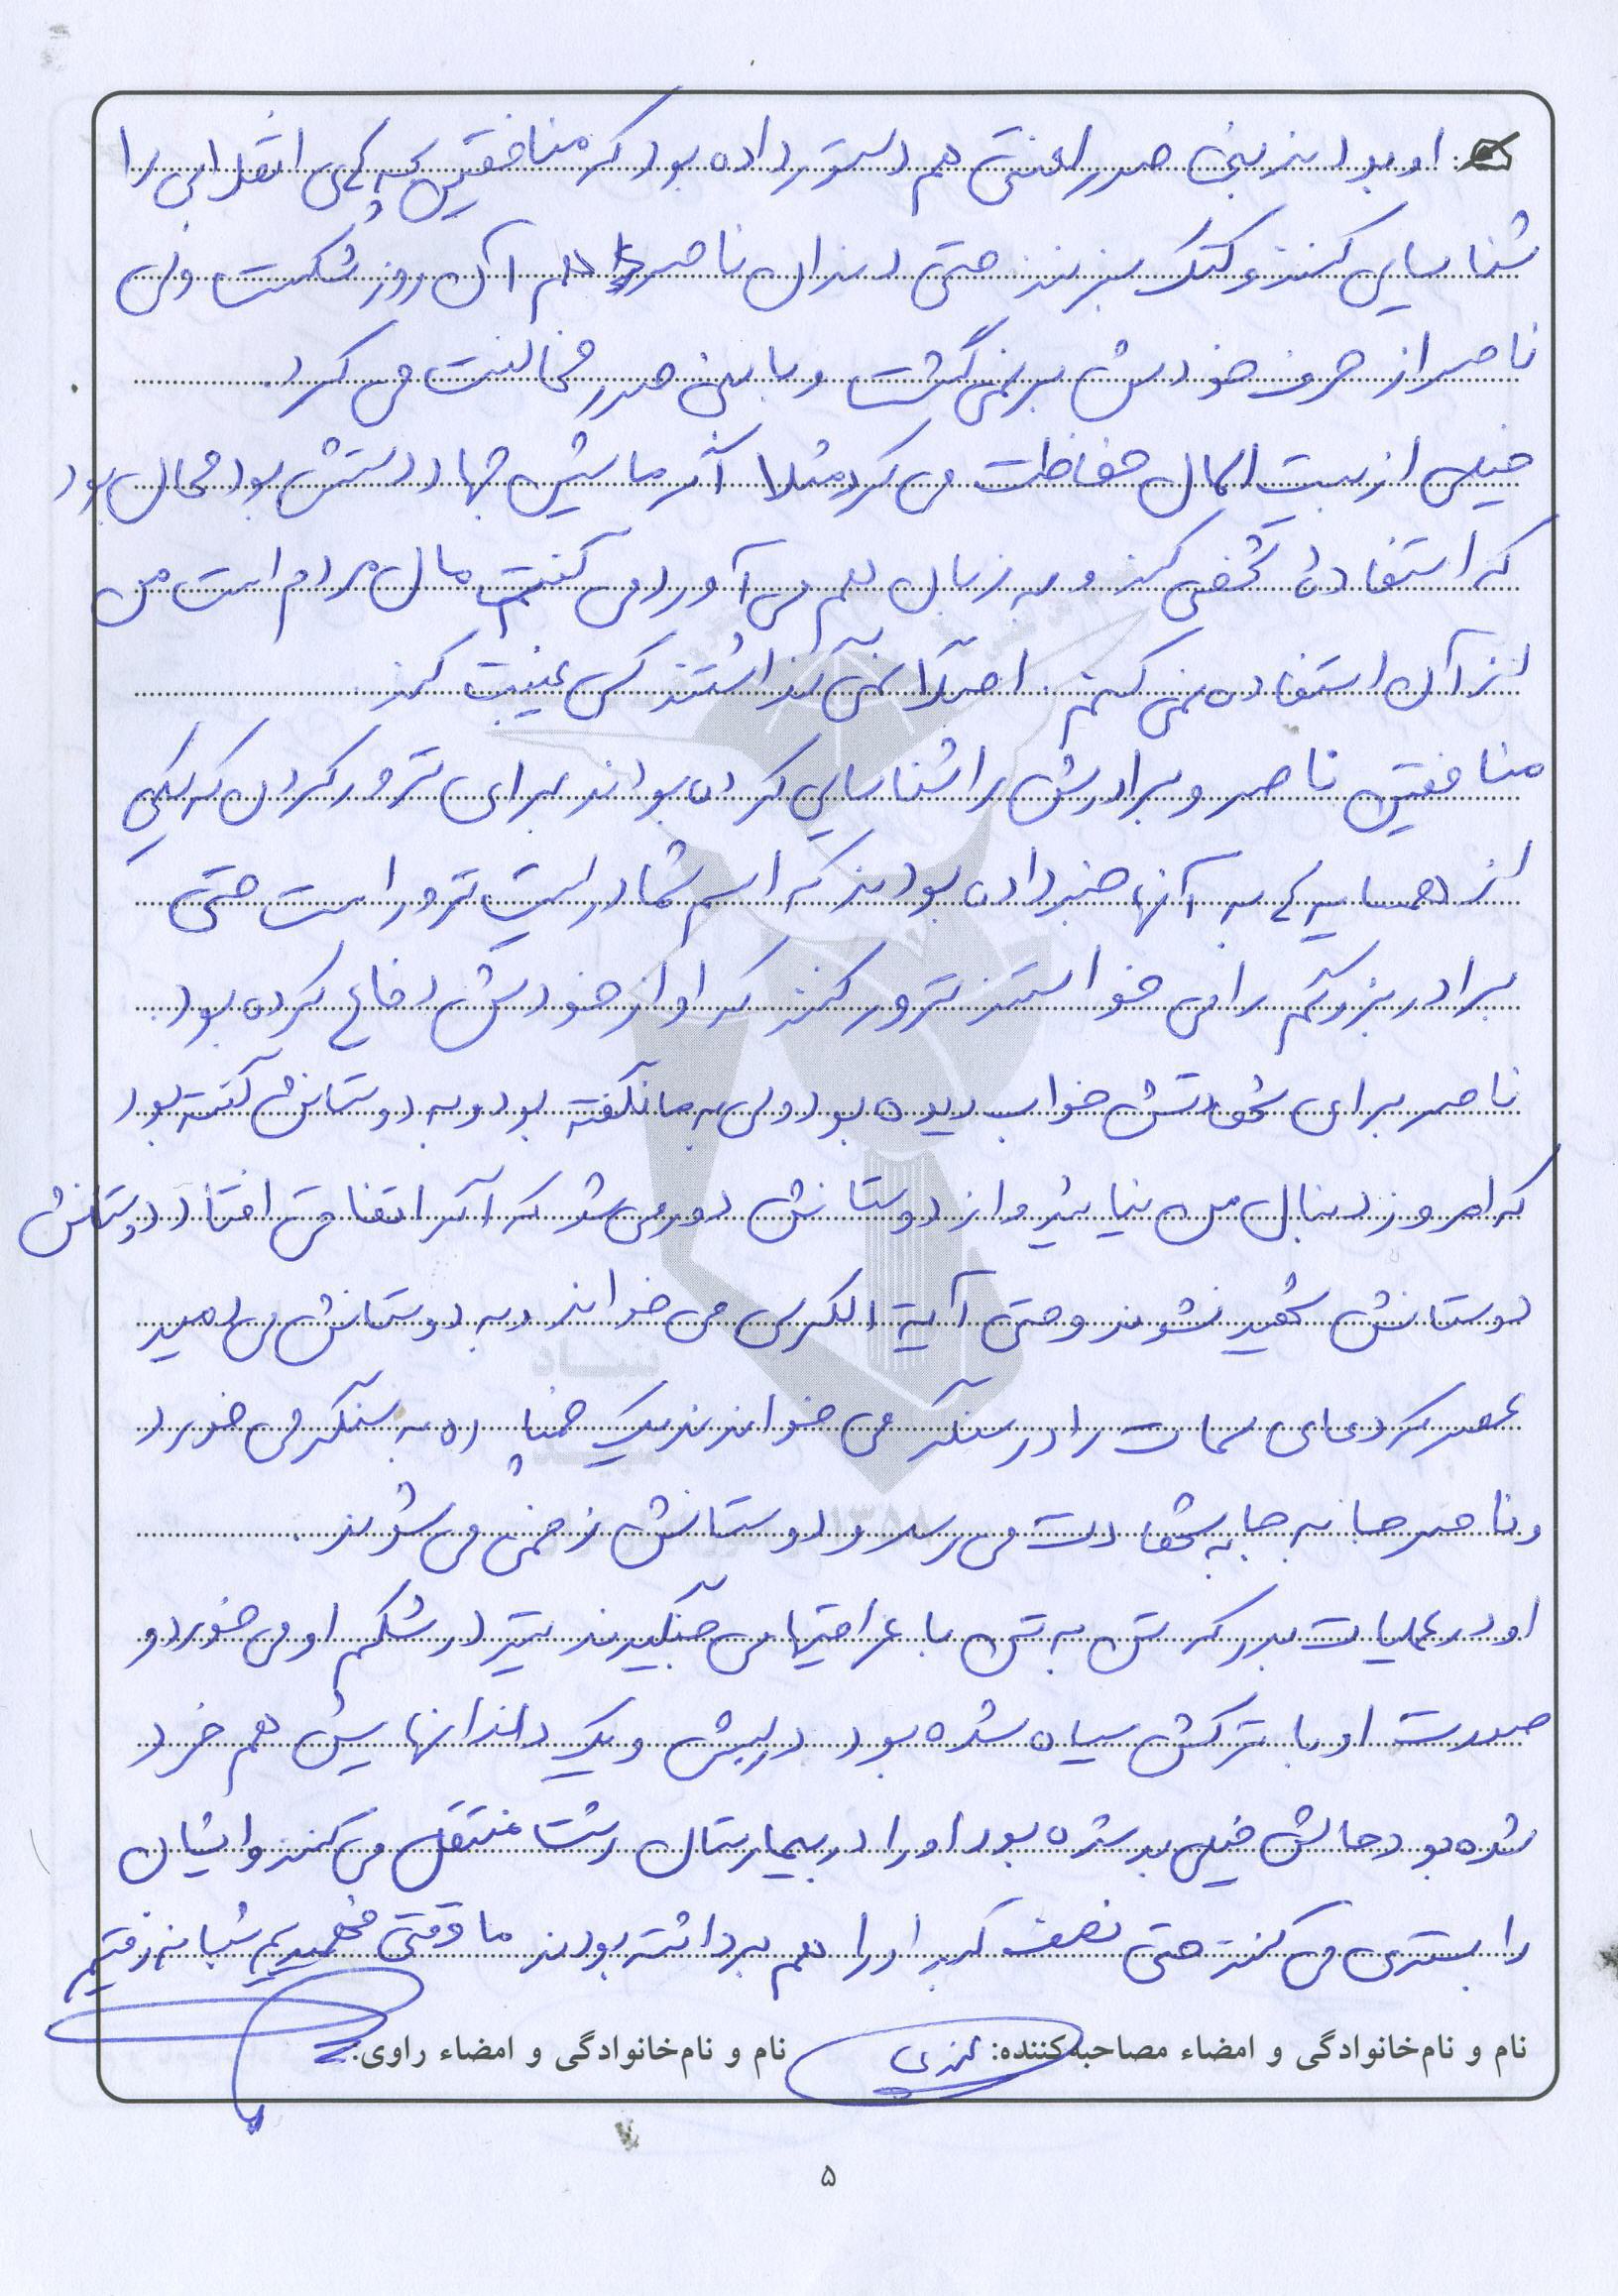 او بودند بنی صدر لعنتی هم دستور داده بود که منافقین بچه های انقلابی را
شناسایی کنند و کتک بزنند حتی دندان ناصر هم آن روز شکست ولی
ناصر از حرف خودش برنمی گشت و با بنی صدر مخالفت می کرد.
خیلی از بیت المال حفاظت می کرد مثلا اگر ماشین جهاد دستش بود محال بود
که استفاده شخصی کند و به زبان هم می آورد می گفت مال مردم است من
از آن استفاده نمی کنم. اصلا نمی گذاشتند کسی غیبت کند
منافقین ناصر و برادرش را شناسایی کرده بودند برای ترور کردن که یکی
از همسایه ها به آنها خبر داده بودند که اسم شما در لیست ترور است حتی
برادر بزرگم را می خواستند ترور کنند که او از خودش دفاع کرده بود.
ناصر برای شهادتش خواب دیده بود ولی به ما نگفته بود و به دوستانش گفته بود
که امروز دنبال من نیائید و از دوستانش دور می شد که اگر اتفاقی افتاد دوستانش
دوستانش شهید نشوند و حتی آیة الکرسی می خواند و به دوستانش می دمید
عصر که دعای سمات را در سنگر می خواندند یک خمپاره به سنگر می خورد
و ناصر جا به جا به شهادت می رسد و دوستانش زخمی می شوند.
او در عملیات بدر که تن به تن با عراقیها می جنگیدند تیر در شکم او می خورد و
صورت او با ترکش سیاه شده بود و لبش و یک دندانهایش هم خرد
شده بود حالش خیلی بد شده بود او را در بیمارستان رشت منتقل می کنند و ایشان
را بستری می کنند حتی نصف کبد او را هم برداشته بودند ما وقتی فهمیدیم شبانه رفتیم
نام و نام‌خانوادگی و امضاء مصاحبه‌کننده: نام و نام‌خانوادگی و امضاء راوی:
بنیاد
۱۳۵۸
۵